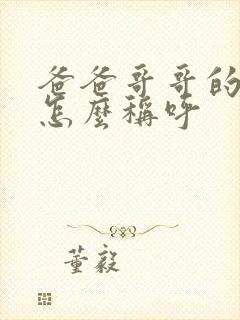 爸爸哥哥的
怎麼稱呼
董毅